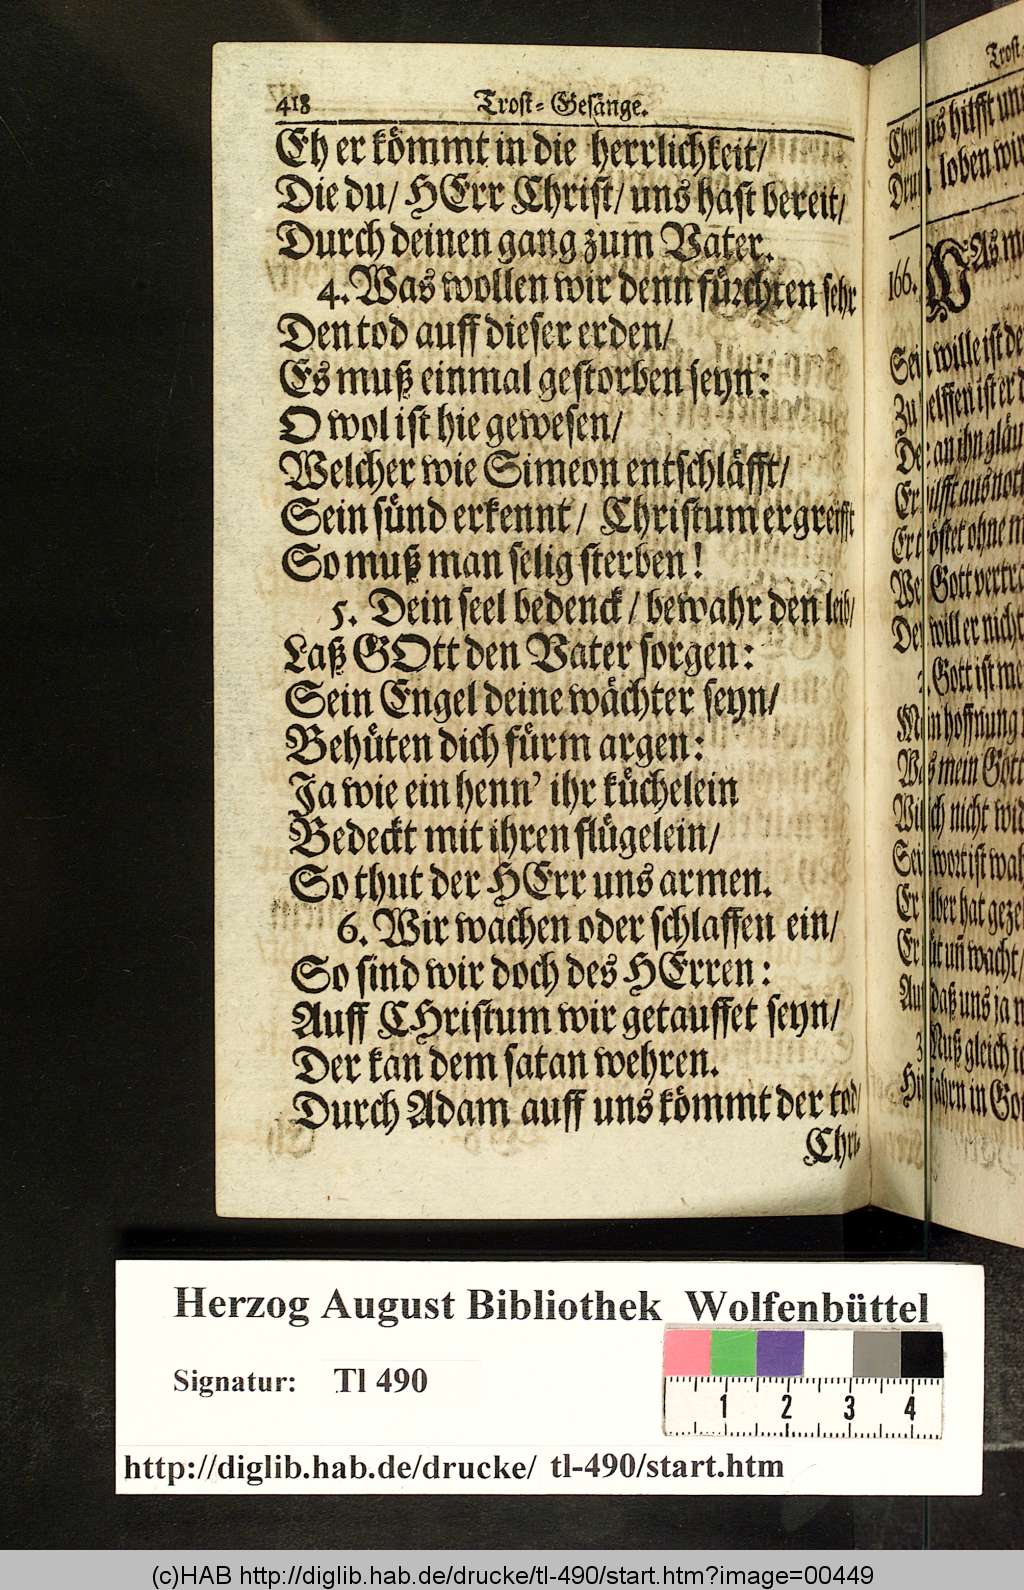 418 Trost-Gesänge.
Eh er kömmt in die herrlichkeit/
Die du/ HErr Christ/ uns hast bereit/
Durch deinen gang zum Vater.
4. Was wollen wir denn fürchten sehr
Den tod auff dieser erden/
Es muß einmal gestorben seyn:
O wol ist hie gewesen/
Welcher wie Simeon entschläfft/
Sein sünd erkennt/ Christum ergreifft
So muß man selig sterben!
5. Dein seel bedenck/ bewahr den leib/
Laß GOtt den Vater sorgen:
Sein Engel deine wächter seyn/
Behüten dich fürm argen:
Ja wie ein henn' ihr küchelein
Bedeckt mit ihren flügelein/
So thut der HErr uns armen.
6. Wir wachen oder schlaffen ein/
So sind wir doch des HErren:
Auff CHristum wir getauffet seyn/
Der kan dem satan wehren.
Durch Adam auff uns kömmt der tod/
Chri-
Trost-
hilfft
loben wir
166. WAs
wille ist
ist er
an ihn
aus noth
ohne
Gott
will er nicht
Gott ist
hoffnung
mein Gott
nicht
wort ist
hat
uñ wacht/
daß uns ja
gleich
in
Herzog August Bibliothek Wolfenbüttel
Signatur: Tl 490
1 2 3 4
http://diglib.hab.de/drucke/ tl-490/start.htm
(c)HAB http://diglib.hab.de/drucke/tl-490/start.htm?image=00449